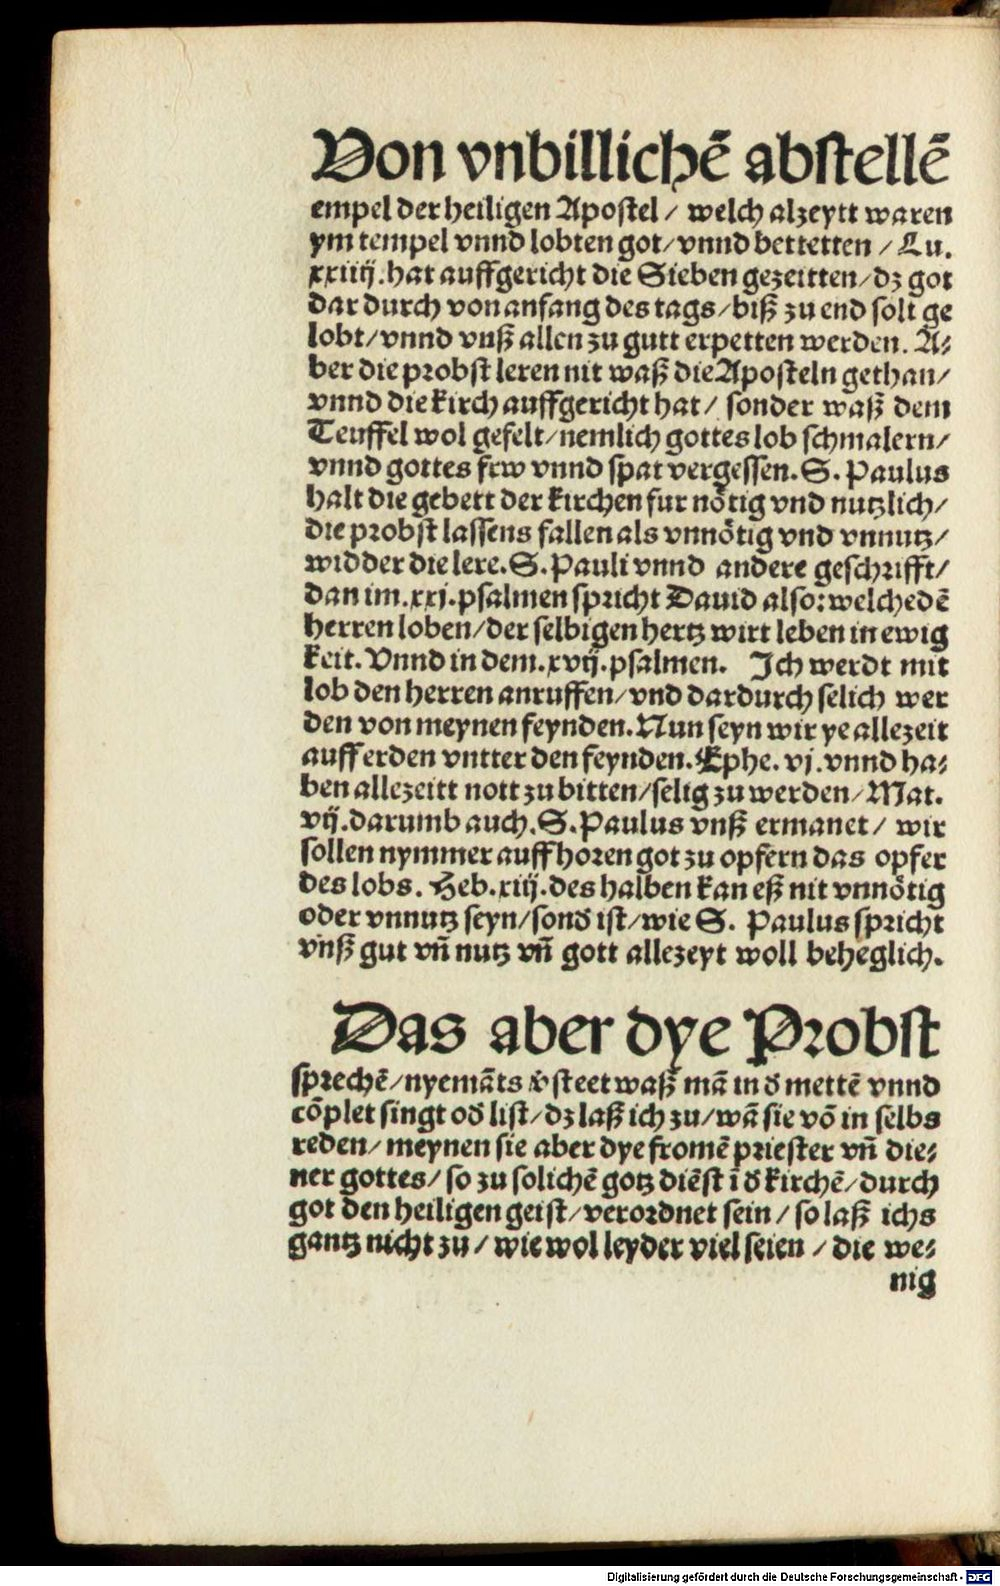 Von vnbillichē abstellē
empel der heiligen Apostel / welch alzeytt waren
ym tempel vnnd lobten got / vnnd bettetten / Lu.
xxiiij. hat auffgericht die Sieben gezeitten / dz got
dar durch von anfang des tags / biß zu end solt ge
lobt / vnnd vnß allen zu gutt erpetten werden. A⸗
ber die probst leren nit waß die Aposteln gethan /
vnnd die kirch auffgericht hat / sonder waß dem
Teuffel wol gefelt / nemlich gottes lob schmalern /
vnnd gottes frw vnnd spat vergessen. S. Paulus
halt die gebett der kirchen fur nötig vnd nutzlich /
die probst lassens fallen als vnnötig vnd vnnutz /
widder die lere. S. Pauli vnnd andere geschrifft /
dan im. xxj. psalmen spricht Dauid also: welche dē
herren loben / der selbigen hertz wirt leben in ewig
keit. Vnnd in dem. xvij. psalmen. Ich werdt mit
lob den herren anruffen / vnd dardurch selich wer
den von meynen feynden. Nun seyn wir ye allezeit
auff erden vntter den feynden. Ephe. vj. vnnd ha⸗
ben allezeitt nott zu bitten / selig zu werden / Mat.
vij. darumb auch. S. Paulus vnß ermanet / wir
sollen nymmer auffhoren got zu opfern das opfer
des lobs. Heb. xiij. des halben kan eß nit vnnötig
oder vnnutz seyn / sond̄ ist / wie S. Paulus spricht
vnß gut vn̄ nutz vn̄ gott allezeyt woll beheglich.
Das aber dye Probst
sprechē / nyemāts v̄steet waß mā in d̄ mettē vnnd
cōplet singt od̄ list / dz laß ich zu / wā sie vō in selbs
reden / meynen sie aber dye fromē priester vn̄ die⸗
ner gottes / so zu solichē gotz diēst ī d̄ kirchē / durch
got den heiligen geist / verordnet sein / so laß ichs
gantz nicht zu / wie wol leyder viel seien / die we⸗
nig
Digitalisierung gefördert durch die Deutsche Forschungsgemeinschaft - DFG